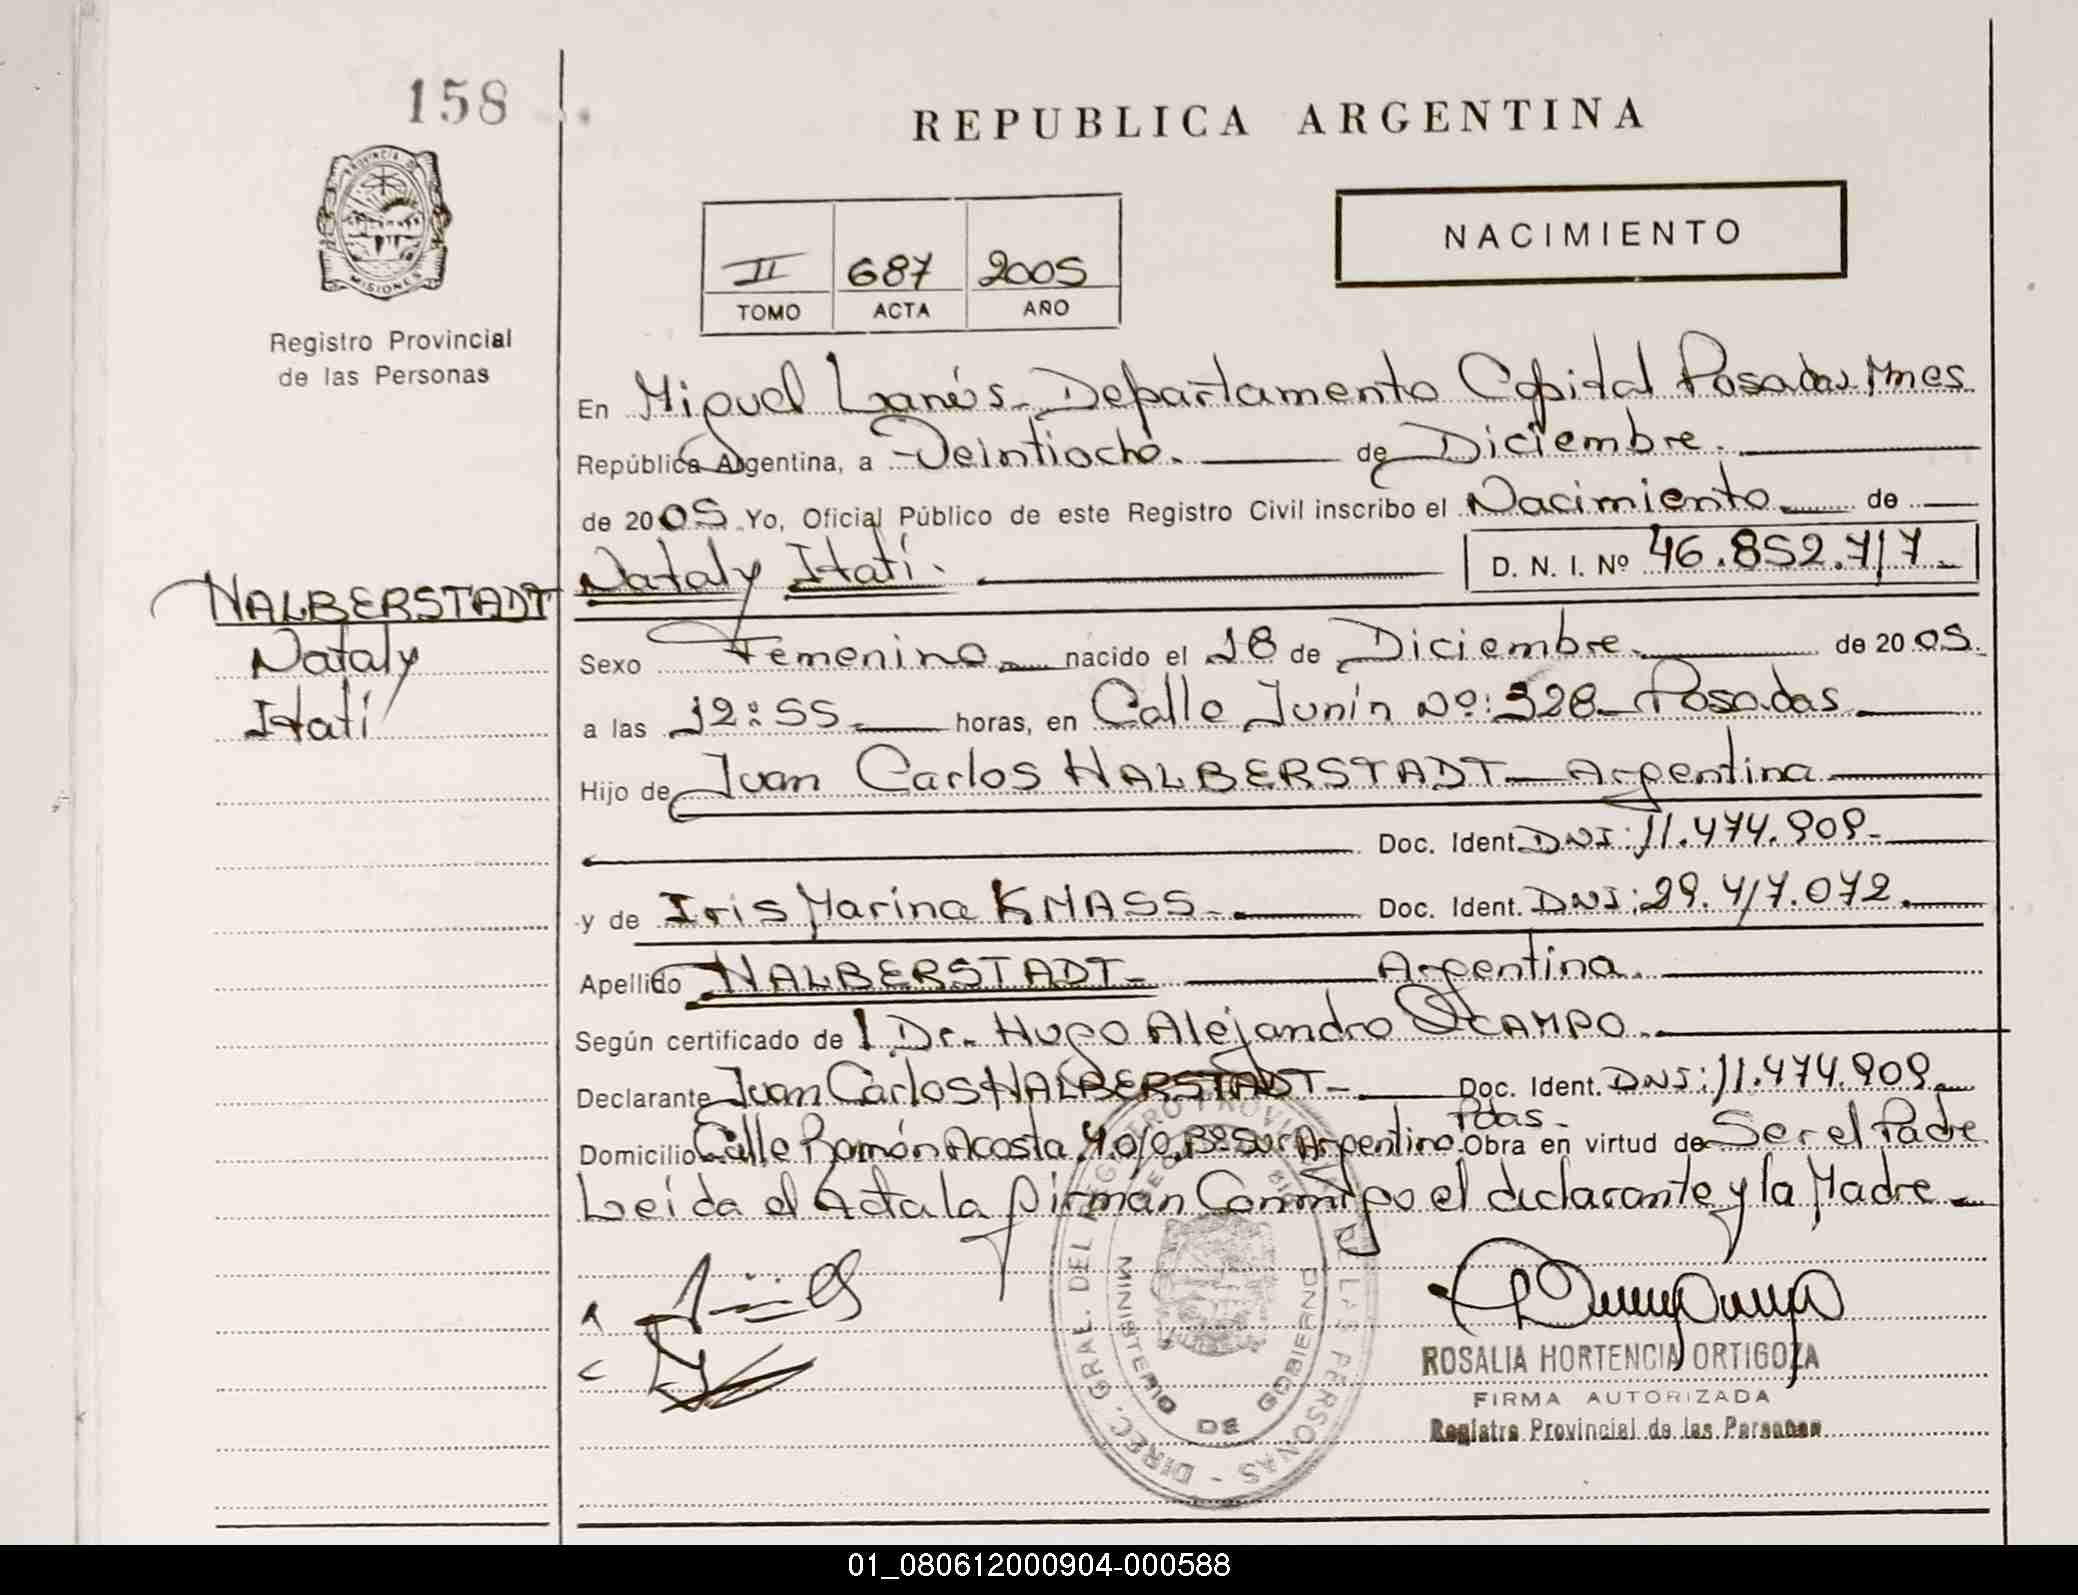 158
REPUBLICA ARGENTINA
PROVINCIA DE
MISIONES
Registro Provincial
de las Personas
NACIMIENTO
II 687 2005
TOMO ACTA AÑO
En Miguel Lanús. Departamento Capital Posadas Mnes
República Argentina, a Veintiocho. de Diciembre.
de 2005 Yo, Oficial Público de este Registro Civil inscribo el Nacimiento de
Nataly Itatí. D. N. I. Nº 46.852.717
HALBERSTADT
Nataly
Itatí
Sexo Femenino nacido el 18 de Diciembre. de 2005.
a las 12:55 horas, en Calle Junín Nº: 328 Posadas
Hijo de Juan Carlos HALBERSTADT Argentina
Doc. Ident. DNI: 11.474.909.
y de Iris Marina KMASS. Doc. Ident. DNI: 29.417.072.
Apellido HALBERSTADT Argentina.
Según certificado de l Dr. Hugo Alejandro OCAMPO.
Declarante Juan Carlos HALBERSTADT Doc. Ident. DNI: 11.474.909
Pdas.
Domicilio Calle Ramón Acosta 4010 Bº Sur Argentino. Obra en virtud de Ser el Padre
Leída el Acta la firman Conmigo el declarante y la Madre
DIREC. GRAL. DEL REGISTRO PROVINCIAL DE LAS PERSONAS
MINISTERIO DE GOBIERNO
ROSALIA HORTENCIA ORTIGOZA
FIRMA AUTORIZADA
Registro Provincial de las Personas
01_080612000904-000588